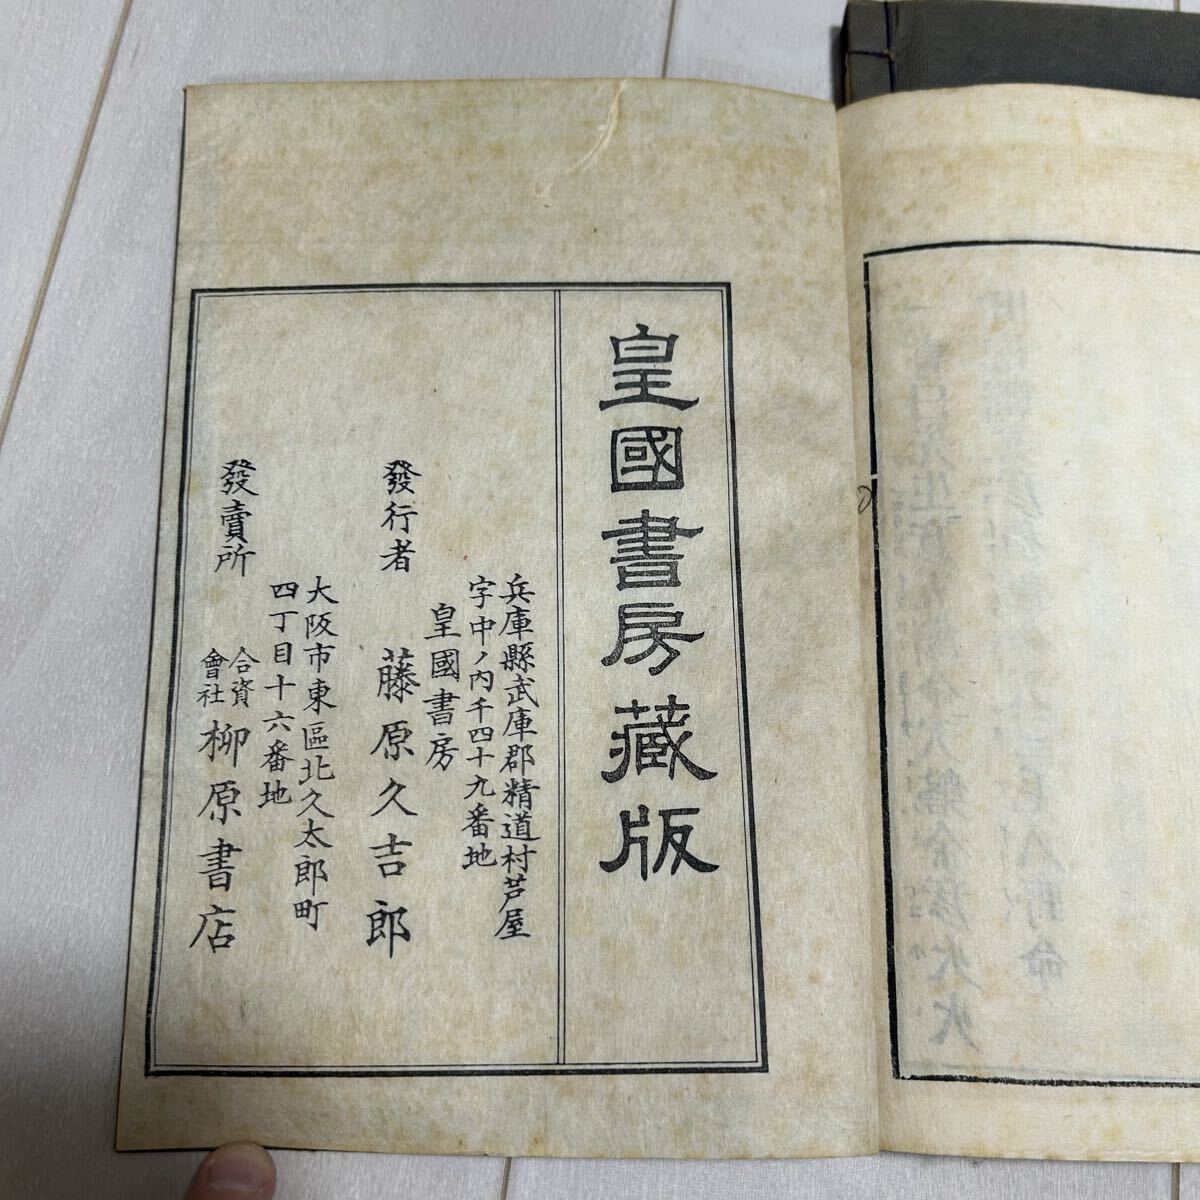 皇國書房藏版
兵庫縣武庫郡精道村芦屋
字中ノ内千四十九番地
皇國書房
發行者 藤原久吉郎
大阪市東區北久太郎町
四丁目十六番地
發賣所 合資會社 柳原書店